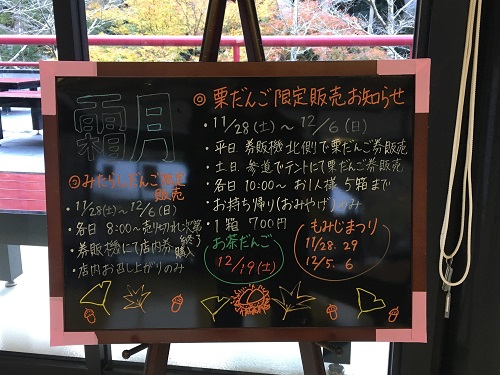 霜月
◎みたらしだんご限定
販売
・11/28(土)～12/6(日)
・各日 8:00～売り切れ次第
終了
・券販機にて店内券
購入
・店内お召し上がりのみ
◎栗だんご限定販売お知らせ
・11/28(土)～12/6(日)
・平日 券販機北側で栗だんご券販売
・土日 参道でテントにて栗だんご券販売
・各日 10:00～ お1人様 5箱まで
・お持ち帰り(おみやげ)のみ
・1箱 700円
お茶だんご
12/19(土)
もみじまつり
11/28. 29
12/5. 6